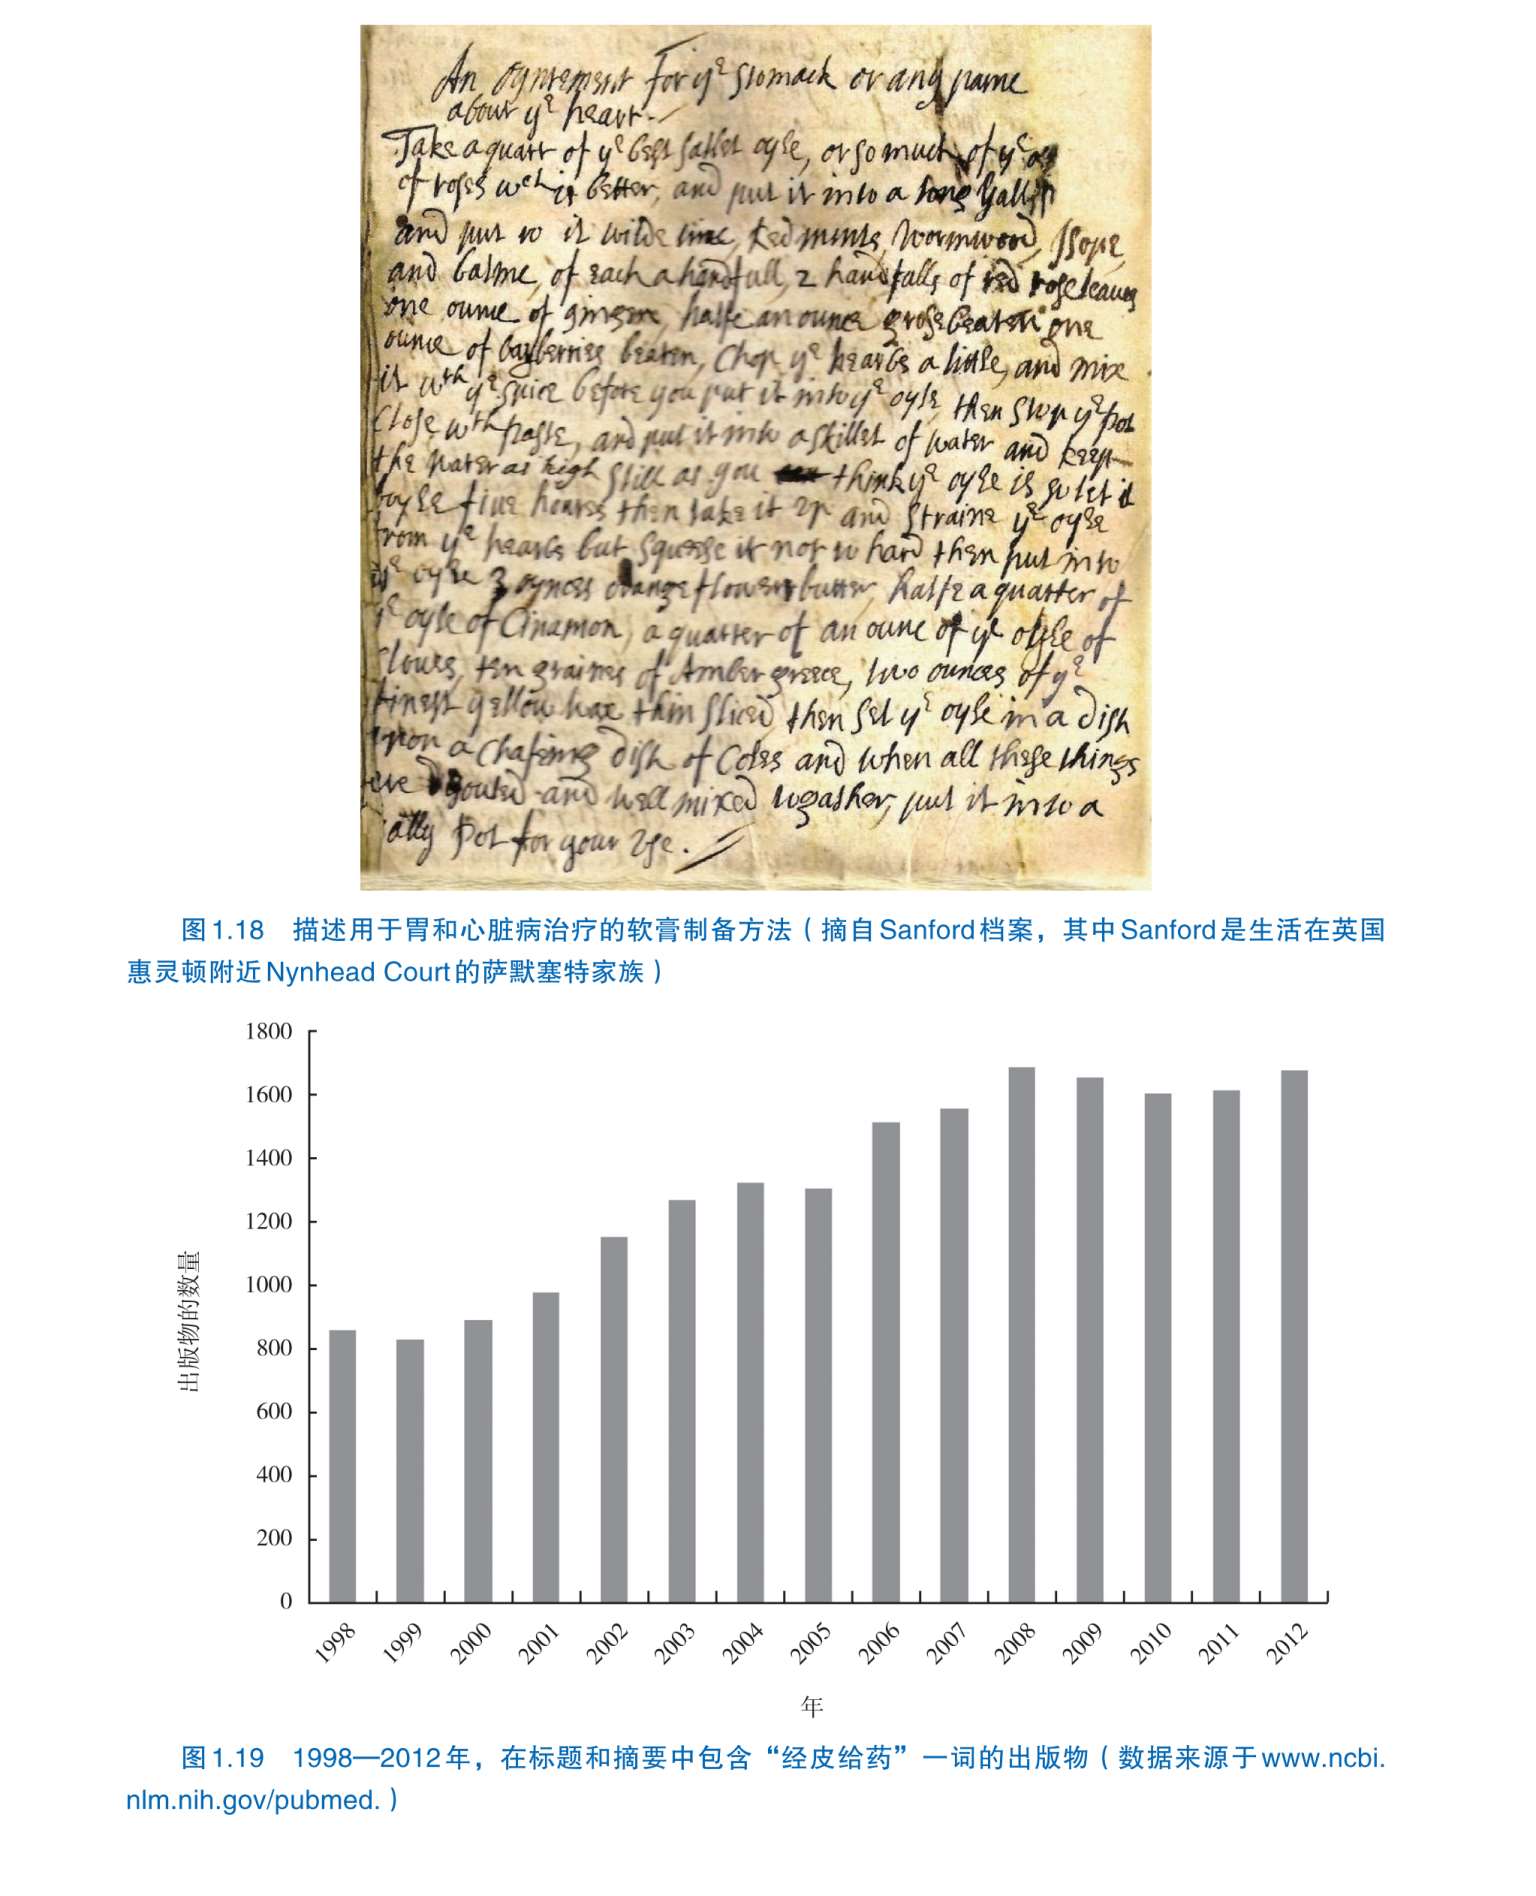 An oyntement for yᵉ stomack or any paine
about yᵉ heart.
Take a quart of yᵉ best sallet oyle, or so much of yᵉ
of roses wᶜʰ is better, and put it into a long Gally
and put to it wilde time, Red mints, Wormwood, Isope,
and balme, of each a handfull, 2 handfulls of red rose leaues
one ounce of ginger, halfe an ounce grose beaten one
ounce of bayberries beaten, Chop yᵉ hearbs a little, and mix
it wᵗʰ yᵉ spice before you put it into yᵉ oyle then stop yᵉ pot
Close wᵗʰ paste, and put it into a skillet of water and keep
the water as high still as you think yᵉ oyle is so let it
boyle fiue houres then take it vp and straine yᵉ oyle
from yᵉ hearbs but squeese it not to hard then put into
yᵉ oyle 3 ounces orange flower butter, halfe a quarter of
yᵉ oyle of Cinamon, a quarter of an ounc of yᵉ oyle of
Cloues, ten graines of Amber greece, two ounces of yᵉ
finest yellow wax thin sliced then set yᵉ oyle in a dish
vpon a Chafeing dish of Coles and when all these things
are and well mixed togather, put it into a
Gally pot for your vse.
图1.18 描述用于胃和心脏病治疗的软膏制备方法（摘自Sanford档案，其中Sanford是生活在英国
惠灵顿附近Nynhead Court的萨默塞特家族）
1800
1600
1400
1200
1000
800
600
400
200
0
出版物的数量
1998 1999 2000 2001 2002 2003 2004 2005 2006 2007 2008 2009 2010 2011 2012
年
图1.19 1998—2012年，在标题和摘要中包含“经皮给药”一词的出版物（数据来源于www.ncbi.
nlm.nih.gov/pubmed.）